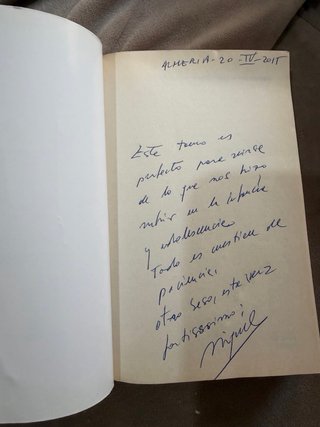 ALMERIA - 20 - IV - 2015
Este tomo es
perfecto para reirse
de lo que nos hizo
sufrir en la infancia
y adolescencia.
Todo es cuestion de
paciencia.
otro beso, este vez
fortisssimo!
Miguel